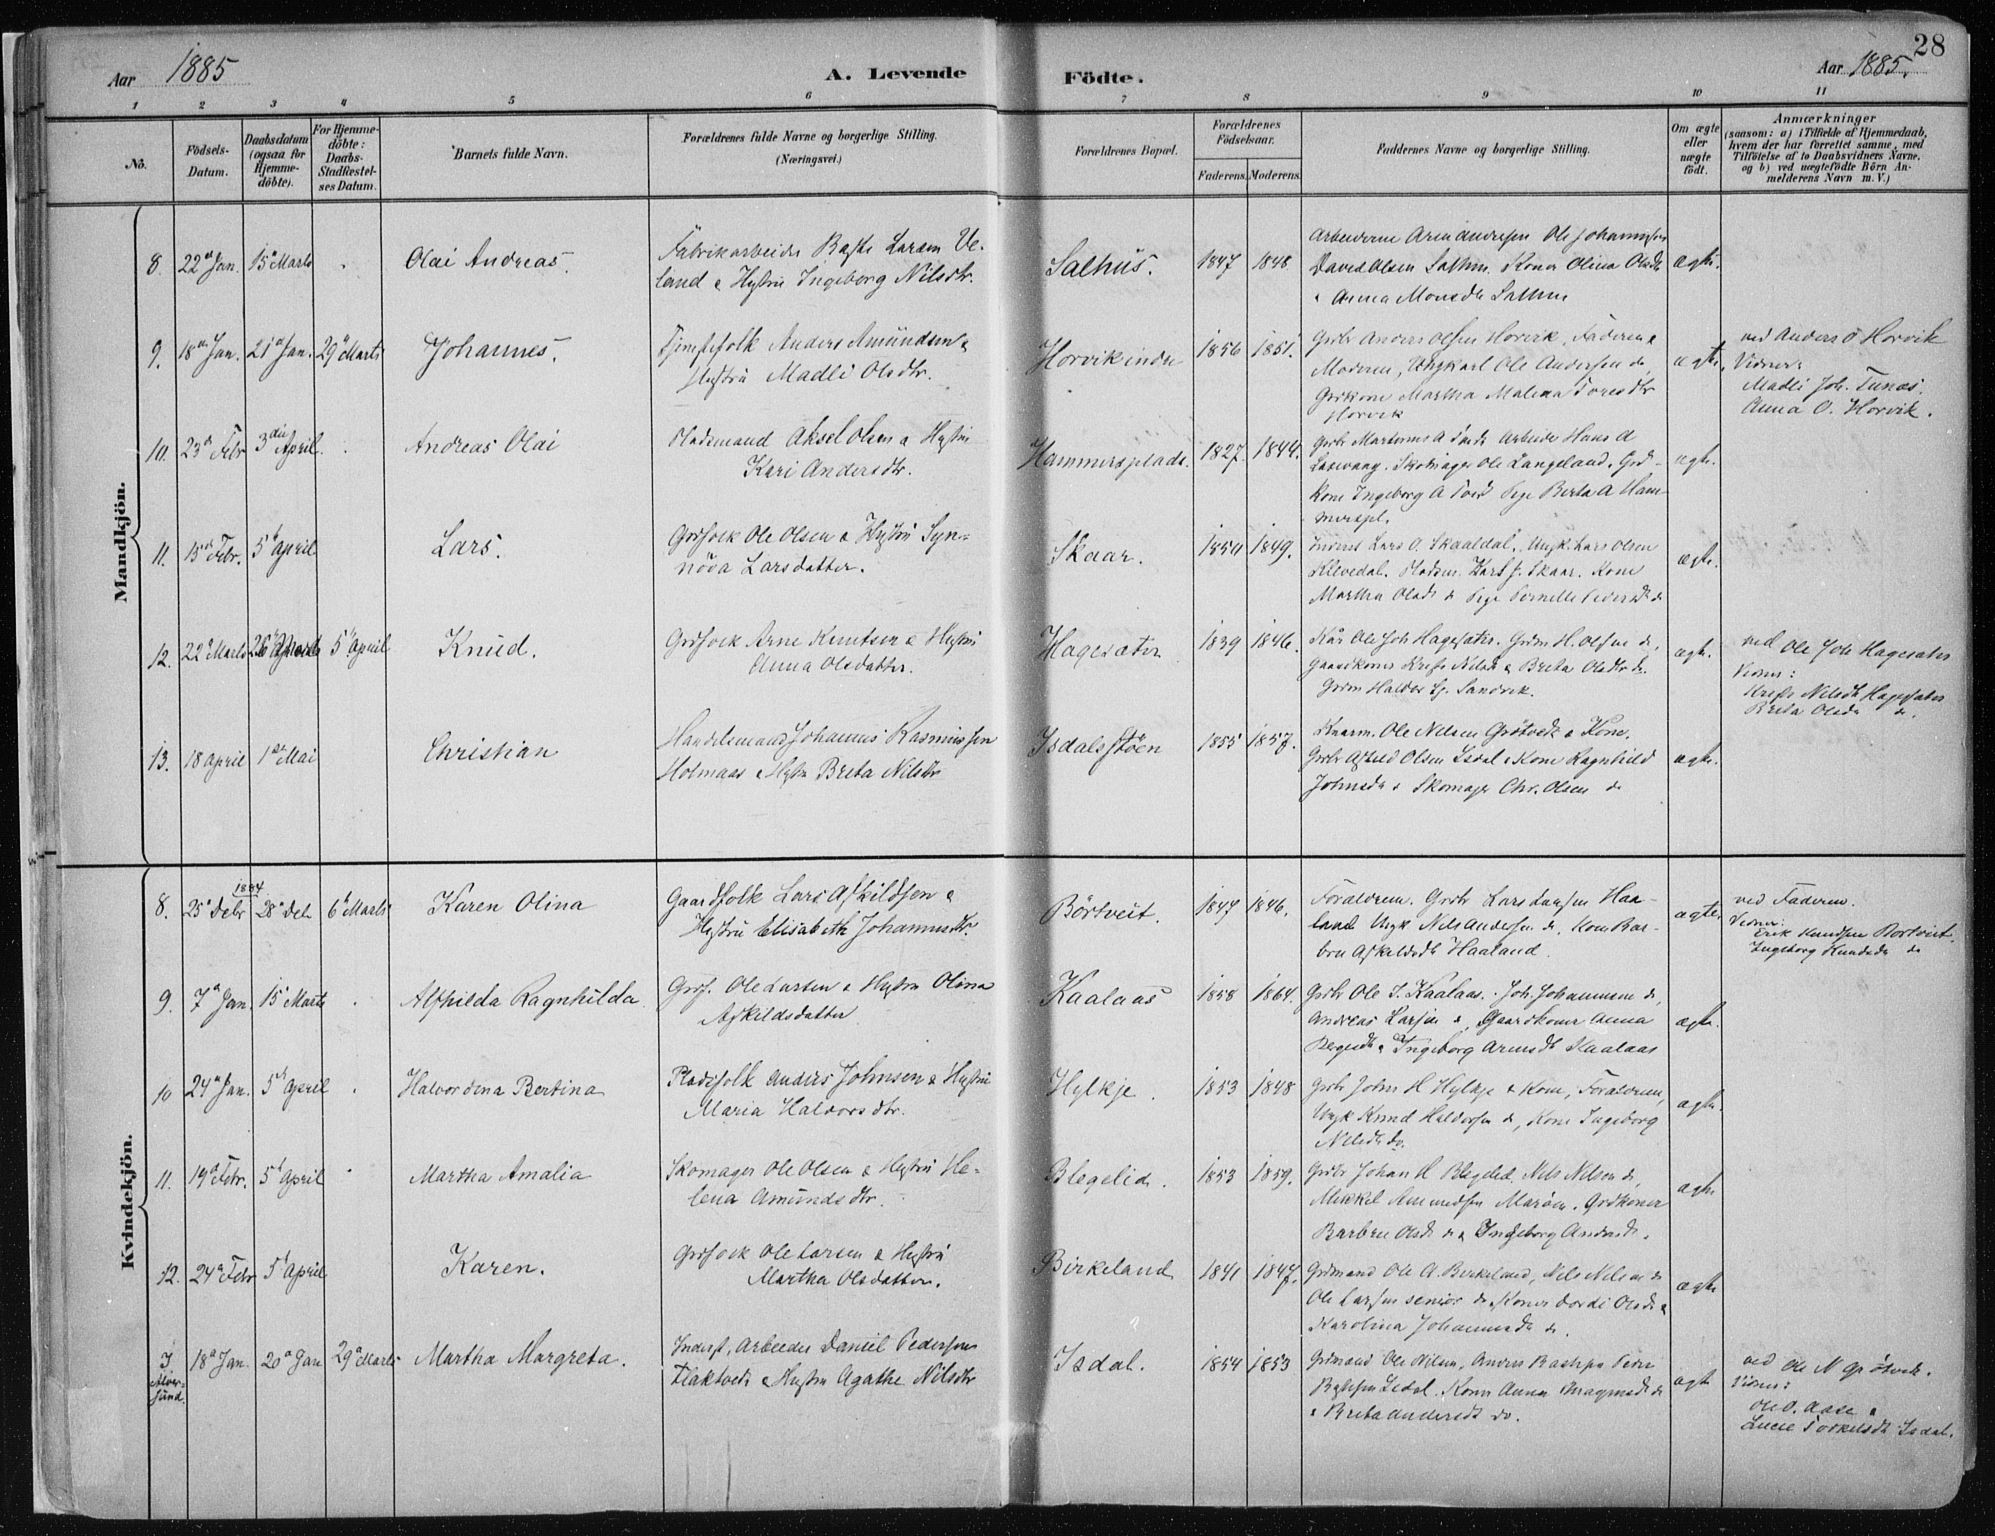 28
Aar 1885
A. Levende
Födte.
Aar 1885.
1 2 3 4 5 6 7 8 9 10 11
No.
Födsels-
Datum.
Daabsdatum
(ogsaa for
Hjemme-
döbte).
For Hjemme-
döbte:
Daabs-
Stadfæstel-
ses Datum.
Barnets fulde Navn.
Forældrenes fulde Navne og borgerlige Stilling.
(Næringsvei.)
Forældrenes Bopæl.
Forældrenes
Födselsaar.
Faderens. Moderens.
Faddernes Navne og borgerlige Stilling.
Om ægte
eller
uægte
födt.
Anmærkninger
(saasom: a) i Tilfælde af Hjemmedaab,
hvem der har forrettet samme, med
Tilföielse af to Daabsvidners Navne,
og b) ved uægtefödte Börn An-
melderens Navn m. V.)
Mandkjön.
8. 22de Jan. 15de Marts
Olai Andreas.
Fabrikarbeider Larsen Ve-
land & Hustru Ingeborg Nilsdtr.
Salhus. 1847 1848
Arbeiderne Ole Johannesen
David Olsen Salhus. Koner Olina Olsdtr
& Anna Monsdtr Salhus
ægte.
9. 18de Jan. 21de Jan. 29de Marts
Johannes.
Tjenestefolk Anders Amundsen &
Hustru Madli Olsdtr.
Horvik indre 1856 1851.
Grbr Anders Olsen Horvik, Faderen &
Moderen, Ungkarl Ole Andersen do,
Grdkone Martha Malena Toresdtr
Horvik
ægte.
ved Anders O Horvik
Vidner:
Madli Joh. Tunæs.
Anna O. Horvik.
10. 23de Febr 3die April
Andreas Olai
Pladsmand Aksel Olsen & Hustru
Kari Andersdtr.
Hammersplads. 1827. 1844.
Arbeider Hans A
Skomager Ole Langeland, Grd-
kone Ingeborg A Pige Berta A Ham-
merspl.
ægte.
11. 15de Febr. 5te April
Lars.
Grdfolk Ole Olsen & Hustru Syn-
növa Larsdatter.
Skaar. 1850 1849.
Lars O. Skaaldal, Ungk. Lars Olsen
Klevedal. Pladsm. J. Skaar. Kone
Martha Olsdtr do Pige Pernille Pedersdtr do
ægte.
12. 22de Marts 26de 5te April
Knud.
Grdfolk Arne Knutsen & Hustru
Anna Olsdatter.
Hagesæter 1839 1846.
Ole Joh Hagesæter. H. Olsen do,
Gaardkoner Nilsdtr & Breta Olsdtr do.
Grdm Haldor Sandvik.
ægte.
ved Ole Joh Hagesæter
Vidner:
Nilsdtr Hagesæter
Breta Olsdtr do.
13. 18 April 1ste Mai
Christian
Handelsmand Johannes Rasmussen
Holmaas & Hustru Breta Nilsdtr
Isdalstöen 1855 1857.
Ole Nilsen Grötveit & Kone.
Grbr Askild Olsen Isdal & Kone Ragnhild
Johnsdtr & Skomager Chr. Olsen do
ægte.
Kvindekjön.
8. 25de Debr 1884 28de Deb 6te Marts
Karen Olina
Gaardfolk Lars Askildsen &
Hustru Elisabeth Johannesdtr.
Börtveit. 1847 1846.
Forældrene. Grbr Lars Larsen Haa-
land Ungk Nils Andersen do. Kone Bar-
bru Askildsdtr Haaland.
ægte
ved Faderen.
Vidner:
Erik Knudsen Bortveit.
Ingeborg Knudsdtr do
9. 7de Jan. 15de Marts
Alfhilda Ragnhilda
Grdf. Ole Larsen & Hustru Olina
Askildsdatter
Kaalaas 1858 1864.
Grbr Ole I. Kaalaas. Joh. Johannesen do,
Andreas Larsen do, Gaardkoner Anna
& Ingeborg Arnesdtr Kaalaas
ægte.
10 24de Jan. 5te April
Halvordena Bertina
Pladsfolk Anders Johnsen & Hustru
Maria Haldorsdtr.
Hylkje. 1853 1848
Grbr John H Hylkje & Kone, Forældrene,
Ungk Knud Haldorsen do, Kone Ingeborg
Nilsdtr do.
ægte.
11. 19de Febr. 5te April
Martha Amalia
Skomager Ole Olsen & Hustru He-
lena Amundsdtr.
Blegelid. 1853 1859.
Grbr Johan H Blegelid, Nils Nilsen do,
Mikkel Amundsen Maröen. Grdkoner
Barbru Olsdtr do & Ingeborg Andersdtr.
ægte
12. 24de Febr 5te April
Karen.
Grdfolk Ole Larsen & Hustru
Martha Olsdatter.
Birkeland 1841 1847.
Grdmand Ole A. Birkeland, Nils Nilsen do
Ole Larsen senior do, Koner Dordi Olsdtr &
Karolina Johannesdtr do.
ægte
J.
Alver-
sund. 18de Jan. 20de Jan 29de Marts
Martha Margreta.
Inderst, Arbeider Daniel Pedersen
Fläktveit & Hustru Agathe Nilsdtr
Isdal. 1854 1853
Grdmand Ole Nilsen, Anders
Isdal. Koner Anna Magnesdtr do
& Breta Andersdtr do.
ægte
ved Ole N Grötveit.
Vidner:
Ole O. Aase &
Lucie Torkelsdtr Isdal.